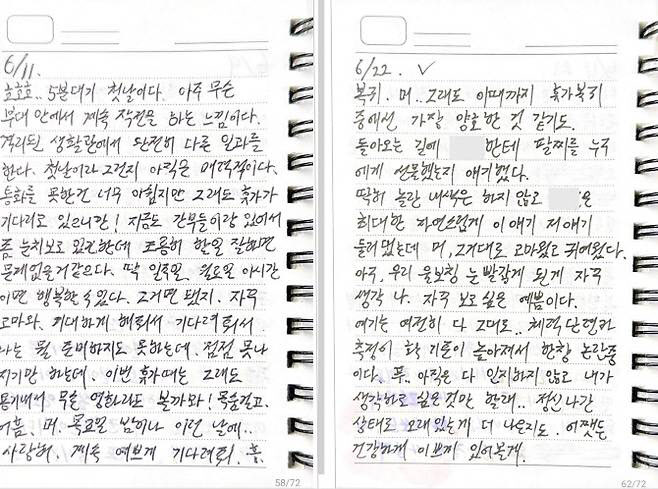 6/11.
호호호.. 5분대기 첫날이다. 아주 무슨
부대 안에서 계속 작전을 하는 느낌이다.
격리된 생활관에서 완전히 다른 일과를
한다. 첫날이라 그런지 아직은 매력적이다.
통화를 못한건 너무 아쉽지만 그래도 휴가가
기다리고 있으니깐! 지금도 간부들이랑 있어서
좀 눈치보고 있긴한데 조용히 할일 잘하면
문제없을거같으다. 딱 일주일, 월요일 이시간
이면 행복할수있다. 그거면 됐지. 자꾸
고마워. 기대하게 해줘서 기다려줘서.
나는 뭘 준비하지도 못하는데. 점점 못나
지기만 하는데. 이번 휴가때는 그래도
용기내서 무슨 영화라도 볼까봐! 목숨걸고.
어흠. 머. 목요일 밤이나 이런 날에..
사랑해, 계속 예쁘게 기다려줘. 흠.
58/72
6/22. ✓
복귀. 머.. 그래도 이때까지 휴가복귀
중에선 가장 양호한 것 같기도.
돌아오는 길에 한테 팔찌를 누구
에게 선물했는지 얘기했다.
딱히 놀란 내색은 하지 않고 은
최대한 자연스럽게 이얘기 저얘기
둘러댔는데 머, 그거대로 고마웠고 귀여웠다.
아주, 우리 울보찡 눈 빨갛게 된게 자꾸
생각 나. 자꾸 보고싶은 예쁨이다.
여기는 여전히 다 그대로.. 체력단련과
측정이 확 기준이 높아져서 한창 논란중
이다. 푸.. 아직은 다 인지하지 않고 내가
생각하고 싶은 것만 할래.. 정신나간
상태로 그래있는게 더 나은지도. 어쨌든
건강하게 이쁘게 있어볼게.
62/72